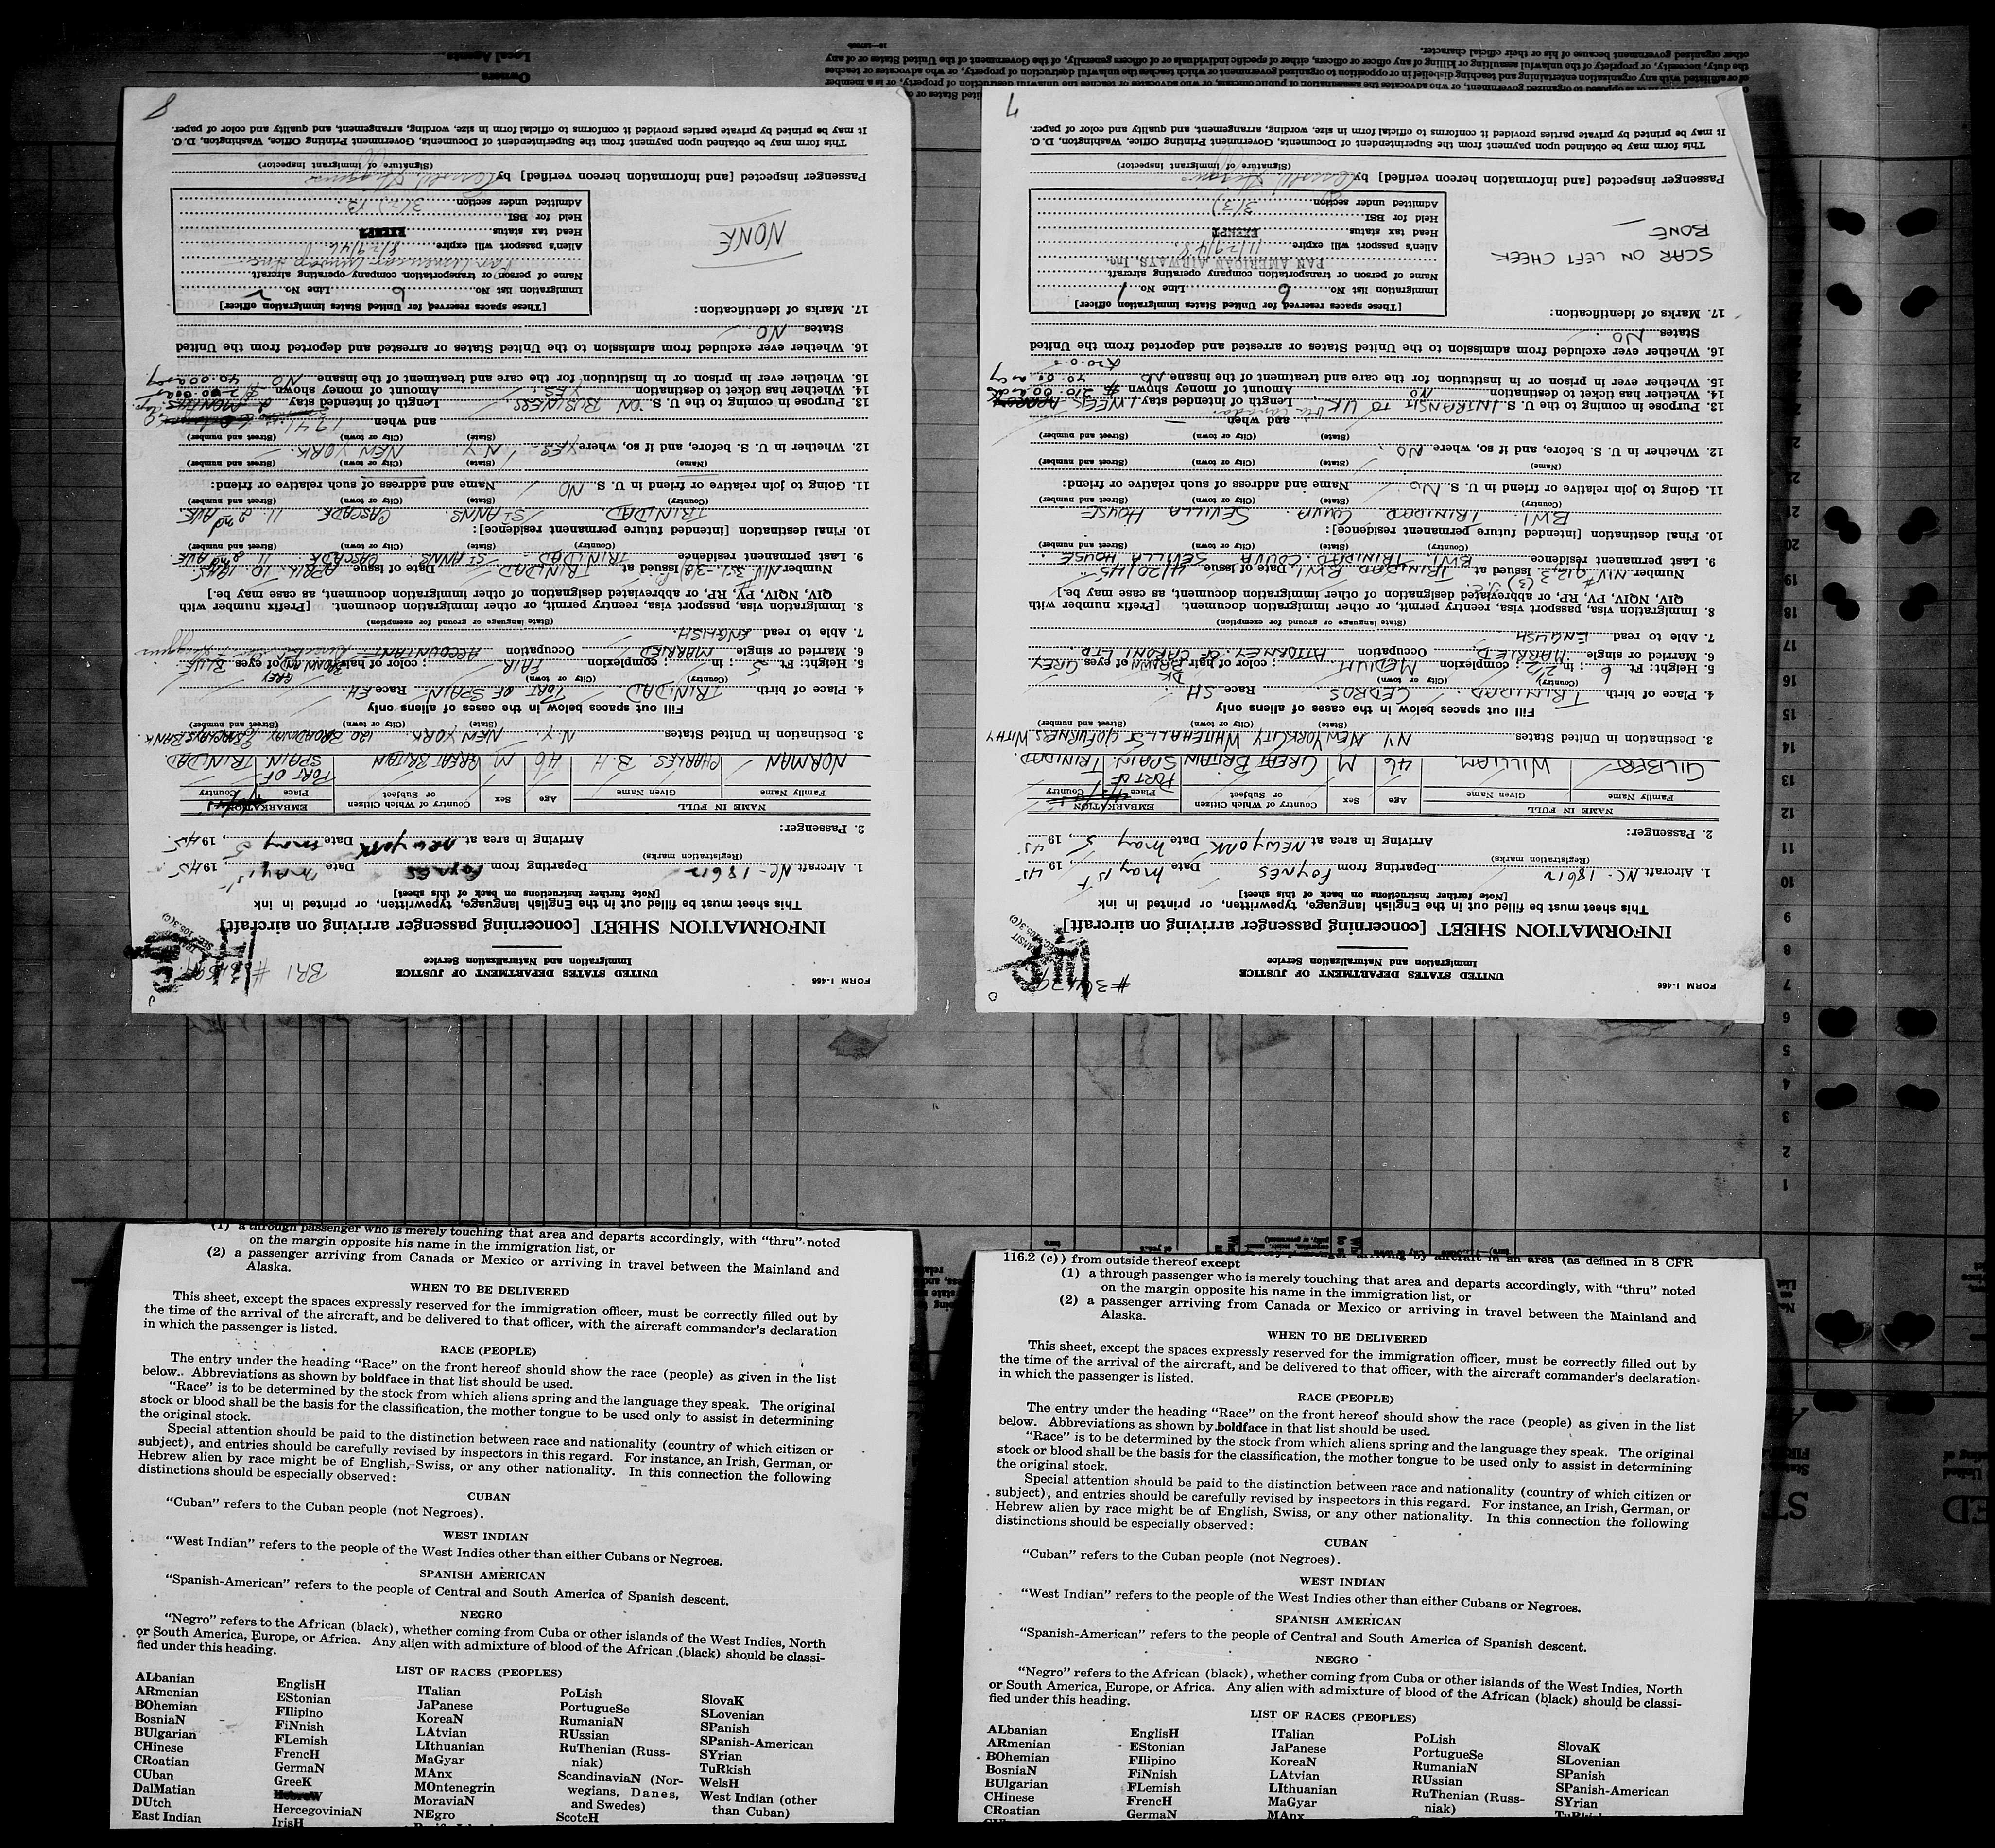 FORM I-466
UNITED STATES DEPARTMENT OF JUSTICE
Immigration and Naturalization Service
INFORMATION SHEET [concerning passenger arriving on aircraft]
This sheet must be filled out in the English language, typewritten, or printed in ink
[Note further instructions on back of this sheet]
1. Aircraft NC-18612 Departing from FOYNES Date May 1st, 1945
(Registration marks)
Arriving in area at NEW YORK Date May 5, 1945
2. Passenger:
NAME IN FULL Age Sex Country of Which Citizen or Subject EMBARKATION
Family Name Given Name Place Country
GILBERT WILLIAM. 46 M GREAT BRITAIN PORT OF SPAIN. TRINIDAD.
3. Destination in United States NY NEW YORK CITY WHITEHALL ST C/O FURNESS WITHY
(State) (City or town) (Street and number)
Fill out spaces below in the cases of aliens only
4. Place of birth TRINIDAD. CEDROS. Race SH.
(Country) (City or town)
5. Height: Ft. 6; in. 2 1/2; complexion MEDIUM; color of hair DK BROWN; color of eyes GREY
6. Married or single MARRIED. Occupation ATTORNEY. OF CARONI LTD
7. Able to read ENGLISH
(State language or ground for exemption)
8. Immigration visa, passport visa, reentry permit, or other immigration document. [Prefix number with
QIV, NQIV, PV, RP, or abbreviated designation of other immigration document, as case may be.]
Number NIV # 912 3(3) Issued at TRINIDAD BWI Date of issue 4/20/45
9. Last permanent residence BWI. TRINIDAD. COUVA SEVILLA HOUSE.
(Country) (State) (City or town) (Street and number)
10. Final destination [intended future permanent residence]:
BWI. TRINIDAD COUVA. SEVILLA HOUSE
(Country) (State) (City or town) (Street and number)
11. Going to join relative or friend in U. S. NO. Name and address of such relative or friend:
(Name) (State) (City or town) (Street and number)
12. Whether in U. S. before, and if so, where NO.
(State) (City or town) (Street and number)
and when
13. Purpose in coming to the U. S. INTRANSIT TO U.K. via Canada. Length of intended stay 1 WEEK
14. Whether has ticket to destination NO Amount of money shown
15. Whether ever in prison or in institution for the care and treatment of the insane NO
16. Whether ever excluded from admission to the United States or arrested and deported from the United
States NO.
17. Marks of identification:
SCAR ON LEFT CHEEK
BONE
[These spaces reserved for United States immigration officer]
Immigration list No. 6 Line No. 7
Name of person or transportation company operating aircraft
PAN AMERICAN AIRWAYS, Inc.
Alien's passport will expire 11/29/48.
Head tax status EXEMPT
Held for BSI
Admitted under section 3(3)
Passenger inspected [and information hereon verified] by
(Signature of immigrant inspector)
This form may be obtained upon payment from the Superintendent of Documents, Government Printing Office, Washington, D.C.
It may be printed by private parties provided it conforms to official form in size, wording, arrangement, and quality and color of paper.
7
FORM I-466
UNITED STATES DEPARTMENT OF JUSTICE
Immigration and Naturalization Service
BRI
INFORMATION SHEET [concerning passenger arriving on aircraft]
This sheet must be filled out in the English language, typewritten, or printed in ink
[Note further instructions on back of this sheet]
1. Aircraft NC-18612 Departing from FOYNES Date May 1st, 1945
(Registration marks)
Arriving in area at NEW YORK Date May 5, 1945
2. Passenger:
NAME IN FULL Age Sex Country of Which Citizen or Subject EMBARKATION
Family Name Given Name Place Country
NORMAN CHARLES B.H. 46 M GREAT BRITAIN PORT OF SPAIN TRINIDAD
3. Destination in United States N.Y. NEW YORK. 120 BROADWAY BARCLAYS BANK.
(State) (City or town) (Street and number)
Fill out spaces below in the cases of aliens only
4. Place of birth TRINIDAD PORT OF SPAIN Race EH.
(Country) (City or town)
5. Height: Ft. 5; in.; complexion FAIR; color of hair BROWN GREY; color of eyes BLUE
6. Married or single MARRIED Occupation ACCOUNTANT
7. Able to read ENGLISH.
(State language or ground for exemption)
8. Immigration visa, passport visa, reentry permit, or other immigration document. [Prefix number with
QIV, NQIV, PV, RP, or abbreviated designation of other immigration document, as case may be.]
Number NIV # Issued at TRINIDAD Date of issue APRIL 10 1945
9. Last permanent residence TRINIDAD. ST. ANNS. CASCADE 11 2nd AVE.
(Country) (State) (City or town) (Street and number)
10. Final destination [intended future permanent residence]:
TRINIDAD. ST ANNS. CASCADE. 11. 2nd AVE.
(Country) (State) (City or town) (Street and number)
11. Going to join relative or friend in U. S. NO Name and address of such relative or friend:
(Name) (State) (City or town) (Street and number)
12. Whether in U. S. before, and if so, where YES. N.Y. NEW YORK.
(State) (City or town) (Street and number)
and when 1941
13. Purpose in coming to the U. S. ON BUSINESS Length of intended stay
14. Whether has ticket to destination YES. Amount of money shown
15. Whether ever in prison or in institution for the care and treatment of the insane NO
16. Whether ever excluded from admission to the United States or arrested and deported from the United
States NO.
17. Marks of identification:
NONE
[These spaces reserved for United States immigration officer]
Immigration list No. 6 Line No.
Name of person or transportation company operating aircraft
Alien's passport will expire
Head tax status EXEMPT
Held for BSI
Admitted under section 3(2)
Passenger inspected [and information hereon verified] by
(Signature of immigrant inspector)
This form may be obtained upon payment from the Superintendent of Documents, Government Printing Office, Washington, D.C.
It may be printed by private parties provided it conforms to official form in size, wording, arrangement, and quality and color of paper.
8
Owners
Local Agents
(1) a through passenger who is merely touching that area and departs accordingly, with "thru" noted
on the margin opposite his name in the immigration list, or
(2) a passenger arriving from Canada or Mexico or arriving in travel between the Mainland and
Alaska.
WHEN TO BE DELIVERED
This sheet, except the spaces expressly reserved for the immigration officer, must be correctly filled out by
the time of the arrival of the aircraft, and be delivered to that officer, with the aircraft commander's declaration
in which the passenger is listed.
RACE (PEOPLE)
The entry under the heading "Race" on the front hereof should show the race (people) as given in the list
below. Abbreviations as shown by boldface in that list should be used.
"Race" is to be determined by the stock from which aliens spring and the language they speak. The original
stock or blood shall be the basis for the classification, the mother tongue to be used only to assist in determining
the original stock.
Special attention should be paid to the distinction between race and nationality (country of which citizen or
subject), and entries should be carefully revised by inspectors in this regard. For instance, an Irish, German, or
Hebrew alien by race might be of English, Swiss, or any other nationality. In this connection the following
distinctions should be especially observed:
CUBAN
"Cuban" refers to the Cuban people (not Negroes).
WEST INDIAN
"West Indian" refers to the people of the West Indies other than either Cubans or Negroes.
SPANISH AMERICAN
"Spanish-American" refers to the people of Central and South America of Spanish descent.
NEGRO
"Negro" refers to the African (black), whether coming from Cuba or other islands of the West Indies, North
or South America, Europe, or Africa. Any alien with admixture of blood of the African (black) should be classi-
fied under this heading.
LIST OF RACES (PEOPLES)
ALbanian
ARmenian
BOhemian
BosniaN
BUlgarian
CHinese
CRoatian
CUban
DalMatian
DUtch
East Indian
EnglisH
EStonian
FIlipino
FiNnish
FLemish
FrencH
GermaN
GreeK
HebreW
HercegoviniaN
IrisH
ITalian
JaPanese
KoreaN
LAtvian
LIthuanian
MaGyar
MAnx
MOntenegrin
MoraviaN
NEgro
PoLish
PortugueSe
RumaniaN
RUssian
RuThenian (Russ-
niak)
ScandinaviaN (Nor-
wegians, Danes,
and Swedes)
ScotcH
SlovaK
SLovenian
SPanish
SPanish-American
SYrian
TuRkish
WelsH
West Indian (other
than Cuban)
116.2 (c)) from outside thereof except
(1) a through passenger who is merely touching that area and departs accordingly, with "thru" noted
on the margin opposite his name in the immigration list, or
(2) a passenger arriving from Canada or Mexico or arriving in travel between the Mainland and
Alaska.
WHEN TO BE DELIVERED
This sheet, except the spaces expressly reserved for the immigration officer, must be correctly filled out by
the time of the arrival of the aircraft, and be delivered to that officer, with the aircraft commander's declaration
in which the passenger is listed.
RACE (PEOPLE)
The entry under the heading "Race" on the front hereof should show the race (people) as given in the list
below. Abbreviations as shown by boldface in that list should be used.
"Race" is to be determined by the stock from which aliens spring and the language they speak. The original
stock or blood shall be the basis for the classification, the mother tongue to be used only to assist in determining
the original stock.
Special attention should be paid to the distinction between race and nationality (country of which citizen or
subject), and entries should be carefully revised by inspectors in this regard. For instance, an Irish, German, or
Hebrew alien by race might be of English, Swiss, or any other nationality. In this connection the following
distinctions should be especially observed:
CUBAN
"Cuban" refers to the Cuban people (not Negroes).
WEST INDIAN
"West Indian" refers to the people of the West Indies other than either Cubans or Negroes.
SPANISH AMERICAN
"Spanish-American" refers to the people of Central and South America of Spanish descent.
NEGRO
"Negro" refers to the African (black), whether coming from Cuba or other islands of the West Indies, North
or South America, Europe, or Africa. Any alien with admixture of blood of the African (black) should be classi-
fied under this heading.
LIST OF RACES (PEOPLES)
ALbanian
ARmenian
BOhemian
BosniaN
BUlgarian
CHinese
CRoatian
EnglisH
EStonian
FIlipino
FiNnish
FLemish
FrencH
GermaN
ITalian
JaPanese
KoreaN
LAtvian
LIthuanian
MaGyar
MAnx
PoLish
PortugueSe
RumaniaN
RUssian
RuThenian (Russ-
niak)
SlovaK
SLovenian
SPanish
SPanish-American
SYrian
TuRkish